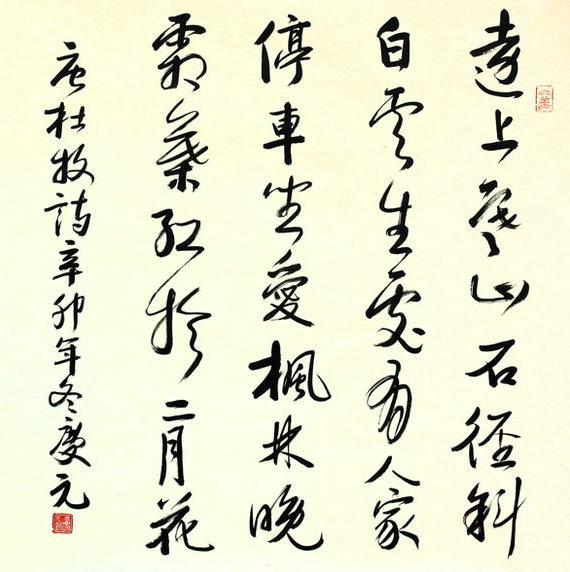 遠上寒山石徑斜
白雲生處有人家
停車坐愛楓林晚
霜葉紅於二月花
唐杜牧詩辛卯年冬慶元